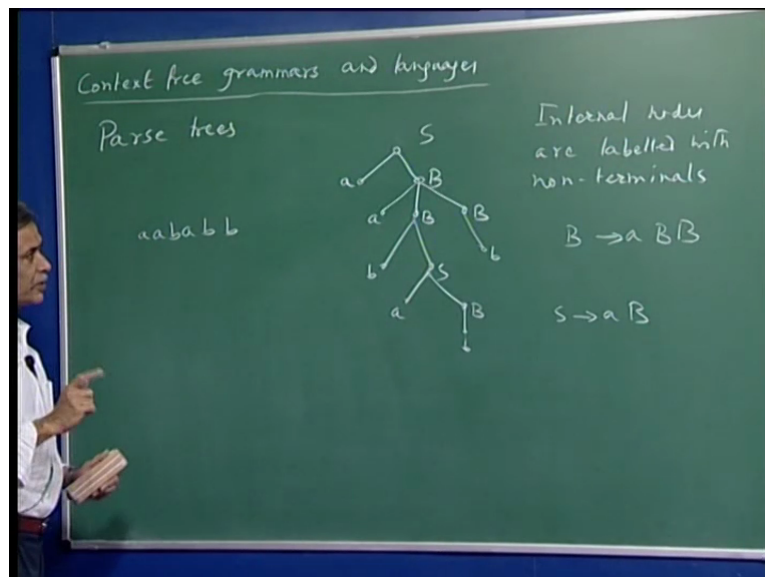 Context free grammars and languages
Parse trees
aababb
S
a B
a B B
b S b
a B
b
Internal nodes
are labelled with
non-terminals
B → a B B
S → a B